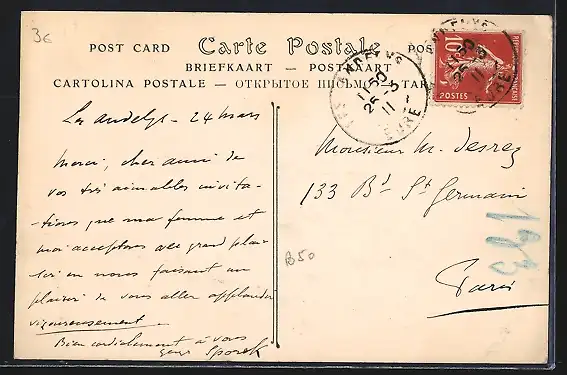 3€
POST CARD Carte Postale POS
BRIEFKAART — POSTKAART
CARTOLINA POSTALE — ОТКРЫТОЕ ПИСЬМО — TAR
EURE
11 50
25 -3
11
EURE
10
POSTES
Les Andelys - 24 mars
Merci, cher ami de
vos très aimables invita-
-tions que ma femme et
moi acceptons avec grand plai-
-sir en nous faisant un
plaisir de vous aller applaudir
vigoureusement
Bien cordialement à vous
Sporck
Monsieur M. Desrez
133 Bd St Germain
Paris
B50